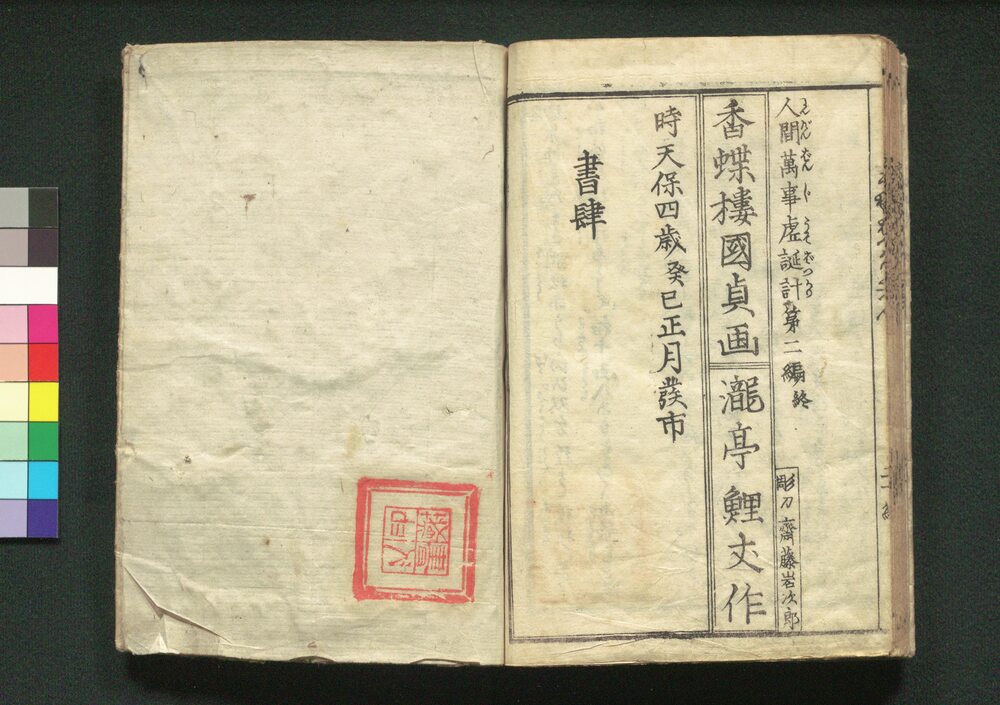 人間萬事虚誕計第二編終
彫刀 齋藤岩次郎
香蝶樓國貞画
瀧亭鯉丈作
時天保四歳癸巳正月發市
書肆